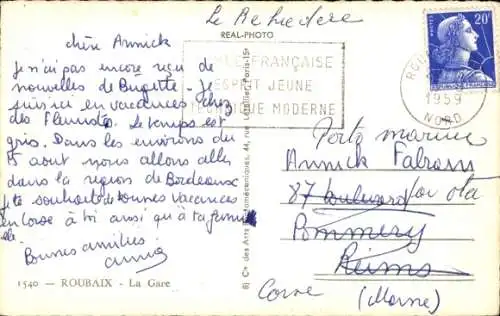 Le Belvedere
REAL-PHOTO
chère Annick
Je n'ai pas encore reçu de
nouvelles de Brigitte. Je
suis ici en vacances chez
des Le temps est
gris. Dans les environs du
15 août nous allons aller
dans la région de Bordeaux
je te souhaite de bonnes vacances
en Corse à toi ainsi qu'à ta famille
Bonnes amitiés
FRANÇAISE
ESPRIT JEUNE
MODERNE
ROUBAIX
1959
NORD
POSTES
20F
Porto marina
Annick
87 boulevard par
Pommery
Reims
Corse (Marne)
1540 — ROUBAIX - La Gare
6) Cie des Arts Photomécaniques, 44, rue Letellier, Paris-15e